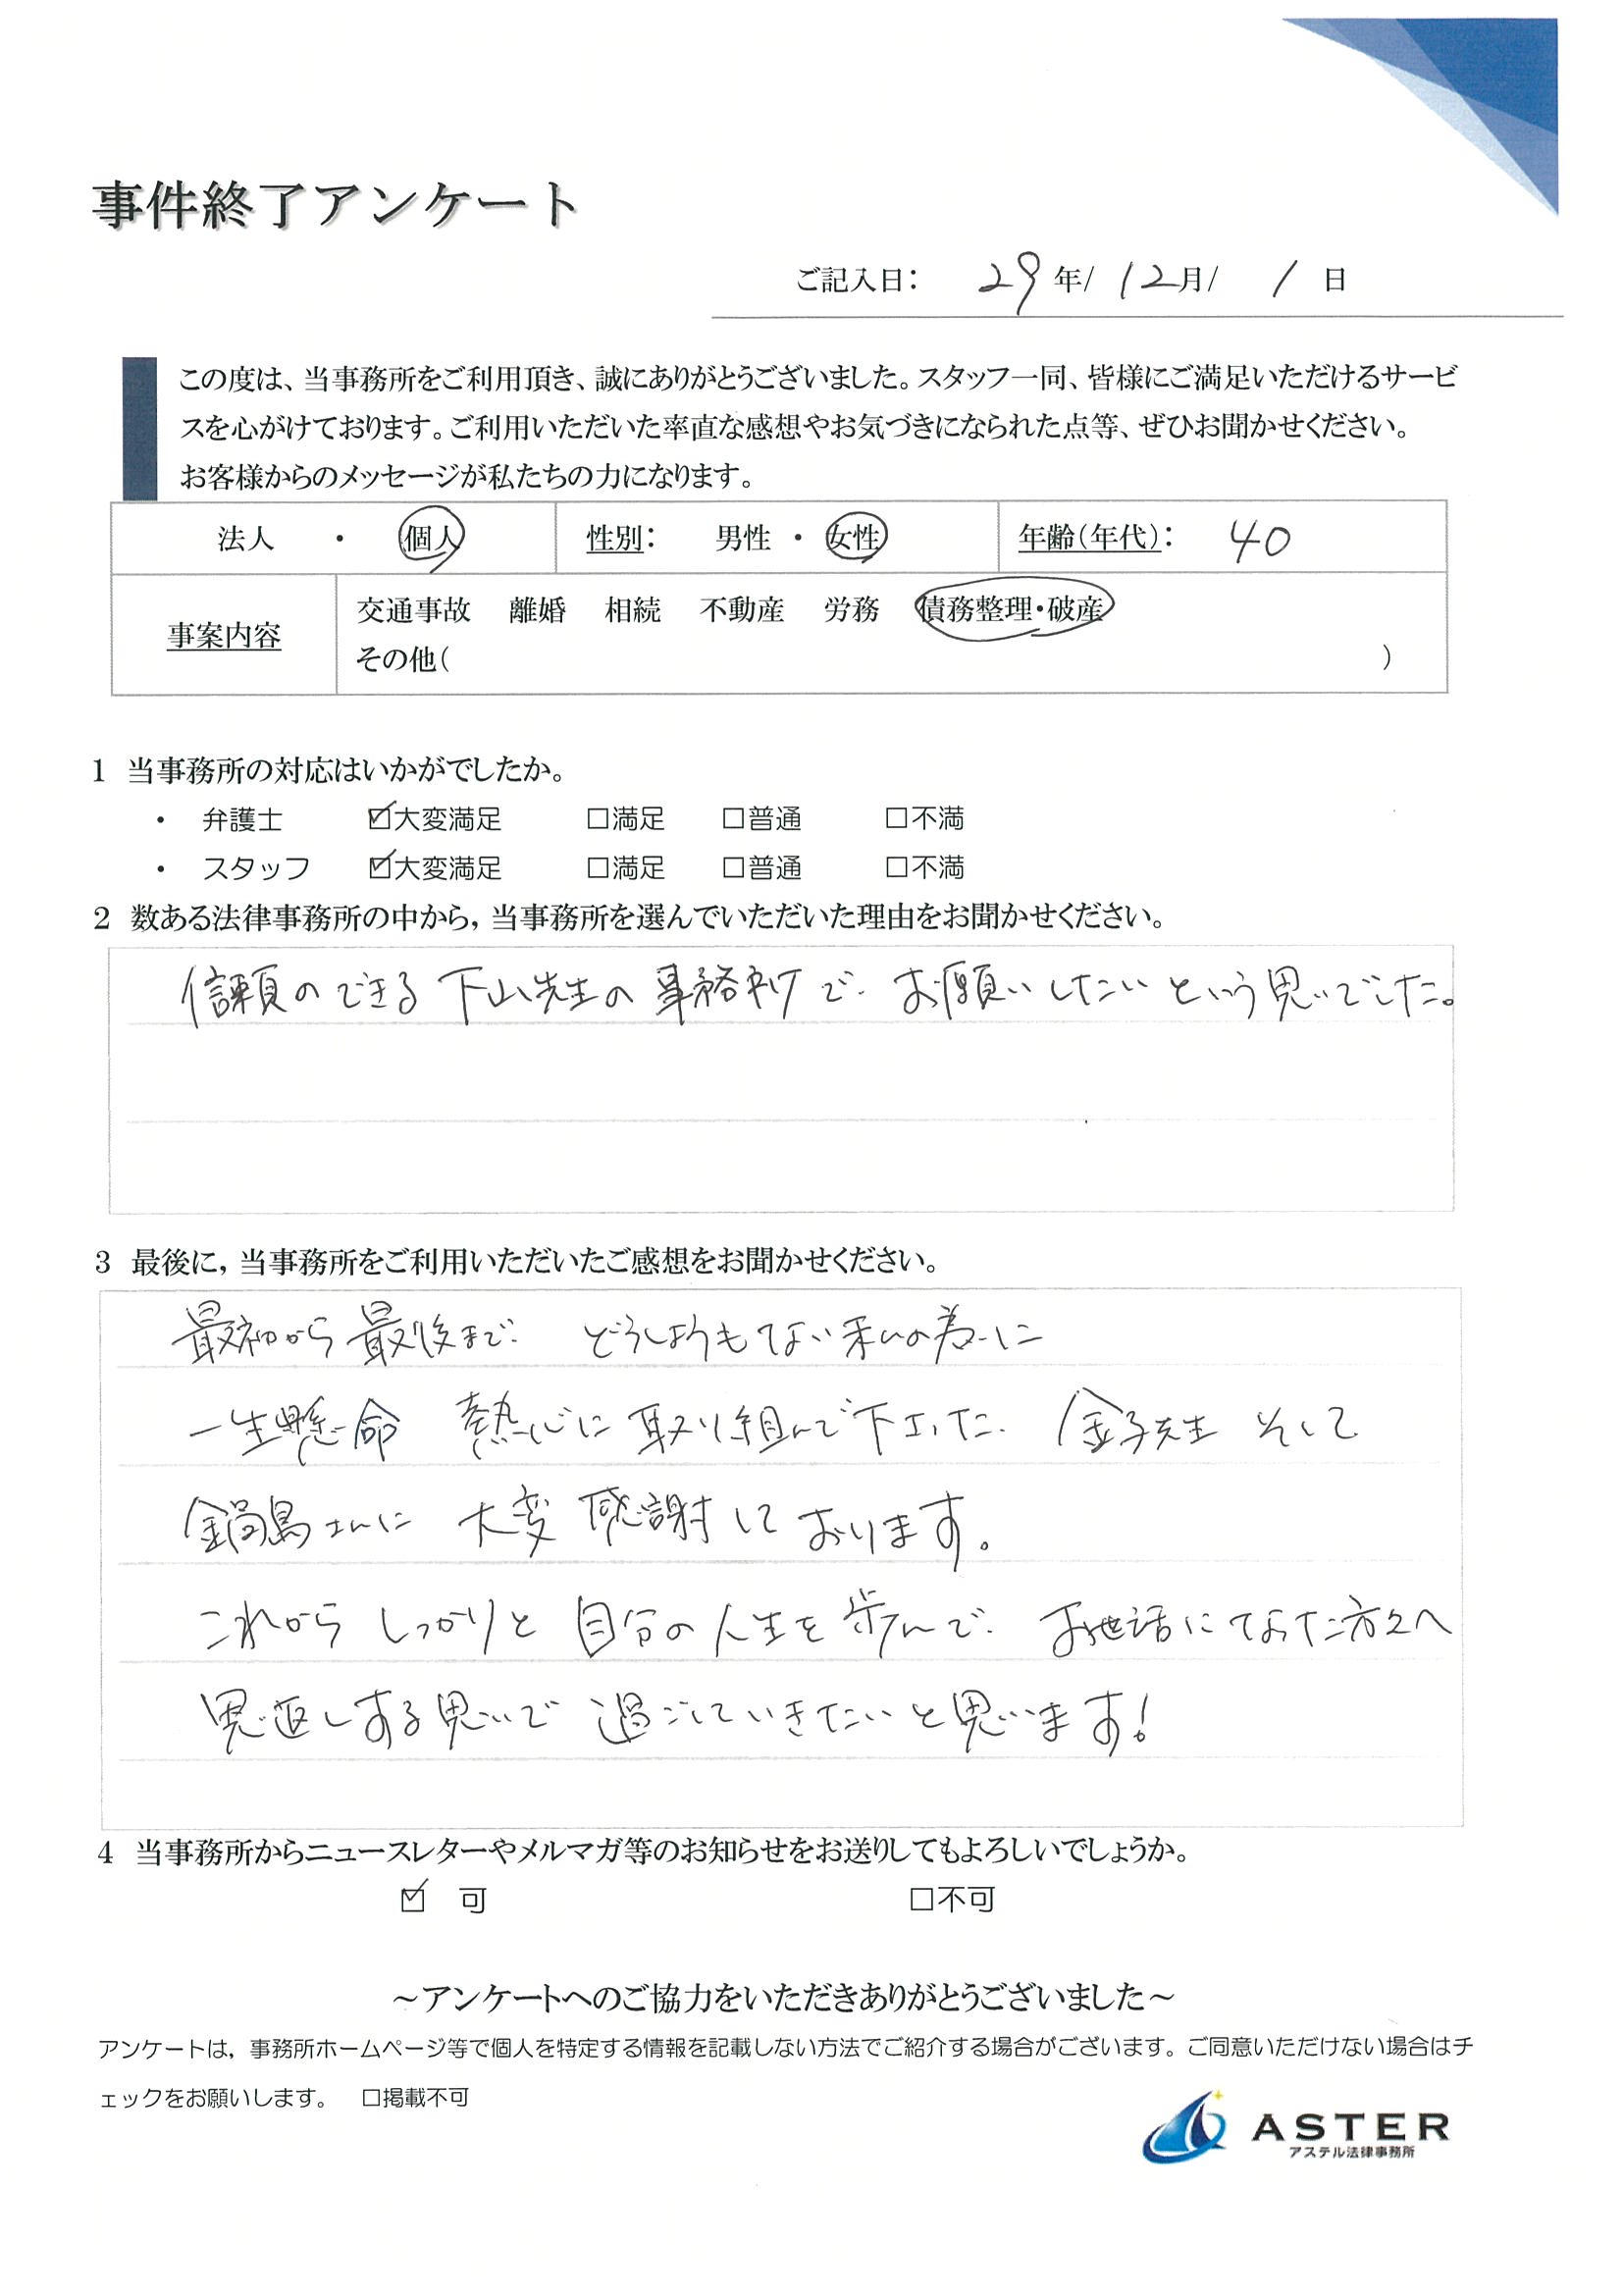 事件終了アンケート
ご記入日： 29年/ 12月/ 1日
この度は、当事務所をご利用頂き、誠にありがとうございました。スタッフ一同、皆様にご満足いただけるサービ
スを心がけております。ご利用いただいた率直な感想やお気づきになられた点等、ぜひお聞かせください。
お客様からのメッセージが私たちの力になります。
法人 ・ 個人 性別： 男性 ・ 女性 年齢（年代）： 40
交通事故 離婚 相続 不動産 労務 債務整理・破産
事案内容
その他（ ）
1 当事務所の対応はいかがでしたか。
・ 弁護士 ☑大変満足 □満足 □普通 □不満
・ スタッフ ☑大変満足 □満足 □普通 □不満
2 数ある法律事務所の中から，当事務所を選んでいただいた理由をお聞かせください。
信頼のできる下山先生の事務所で、お願いしたいという思いでした。
3 最後に，当事務所をご利用いただいたご感想をお聞かせください。
最初から最後まで、どうしようもない私の為に
一生懸命 熱心に取り組んで下さった、金子先生 そして
鍋島さんに 大変感謝しております。
これから しっかりと 自分の人生を歩んで、お世話になった方々へ
恩返しする思いで 過ごしていきたいと思います！
4 当事務所からニュースレターやメルマガ等のお知らせをお送りしてもよろしいでしょうか。
☑ 可 □不可
～アンケートへのご協力をいただきありがとうございました～
アンケートは，事務所ホームページ等で個人を特定する情報を記載しない方法でご紹介する場合がございます。ご同意いただけない場合はチ
ェックをお願いします。 □掲載不可
ASTER
アステル法律事務所